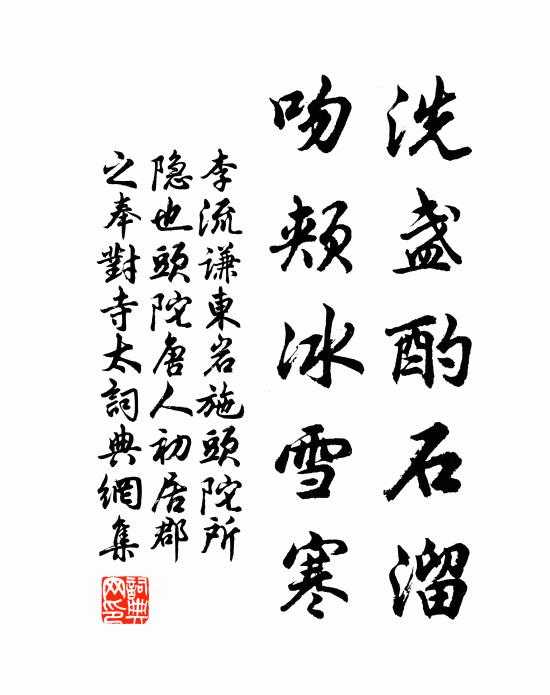 洗盏酌石溜
吻颊冰雪寒
李流谦東岩施頭陀所
隐也頭陀唐人初居郡
之奉對寺太詞典網集
詞典网印